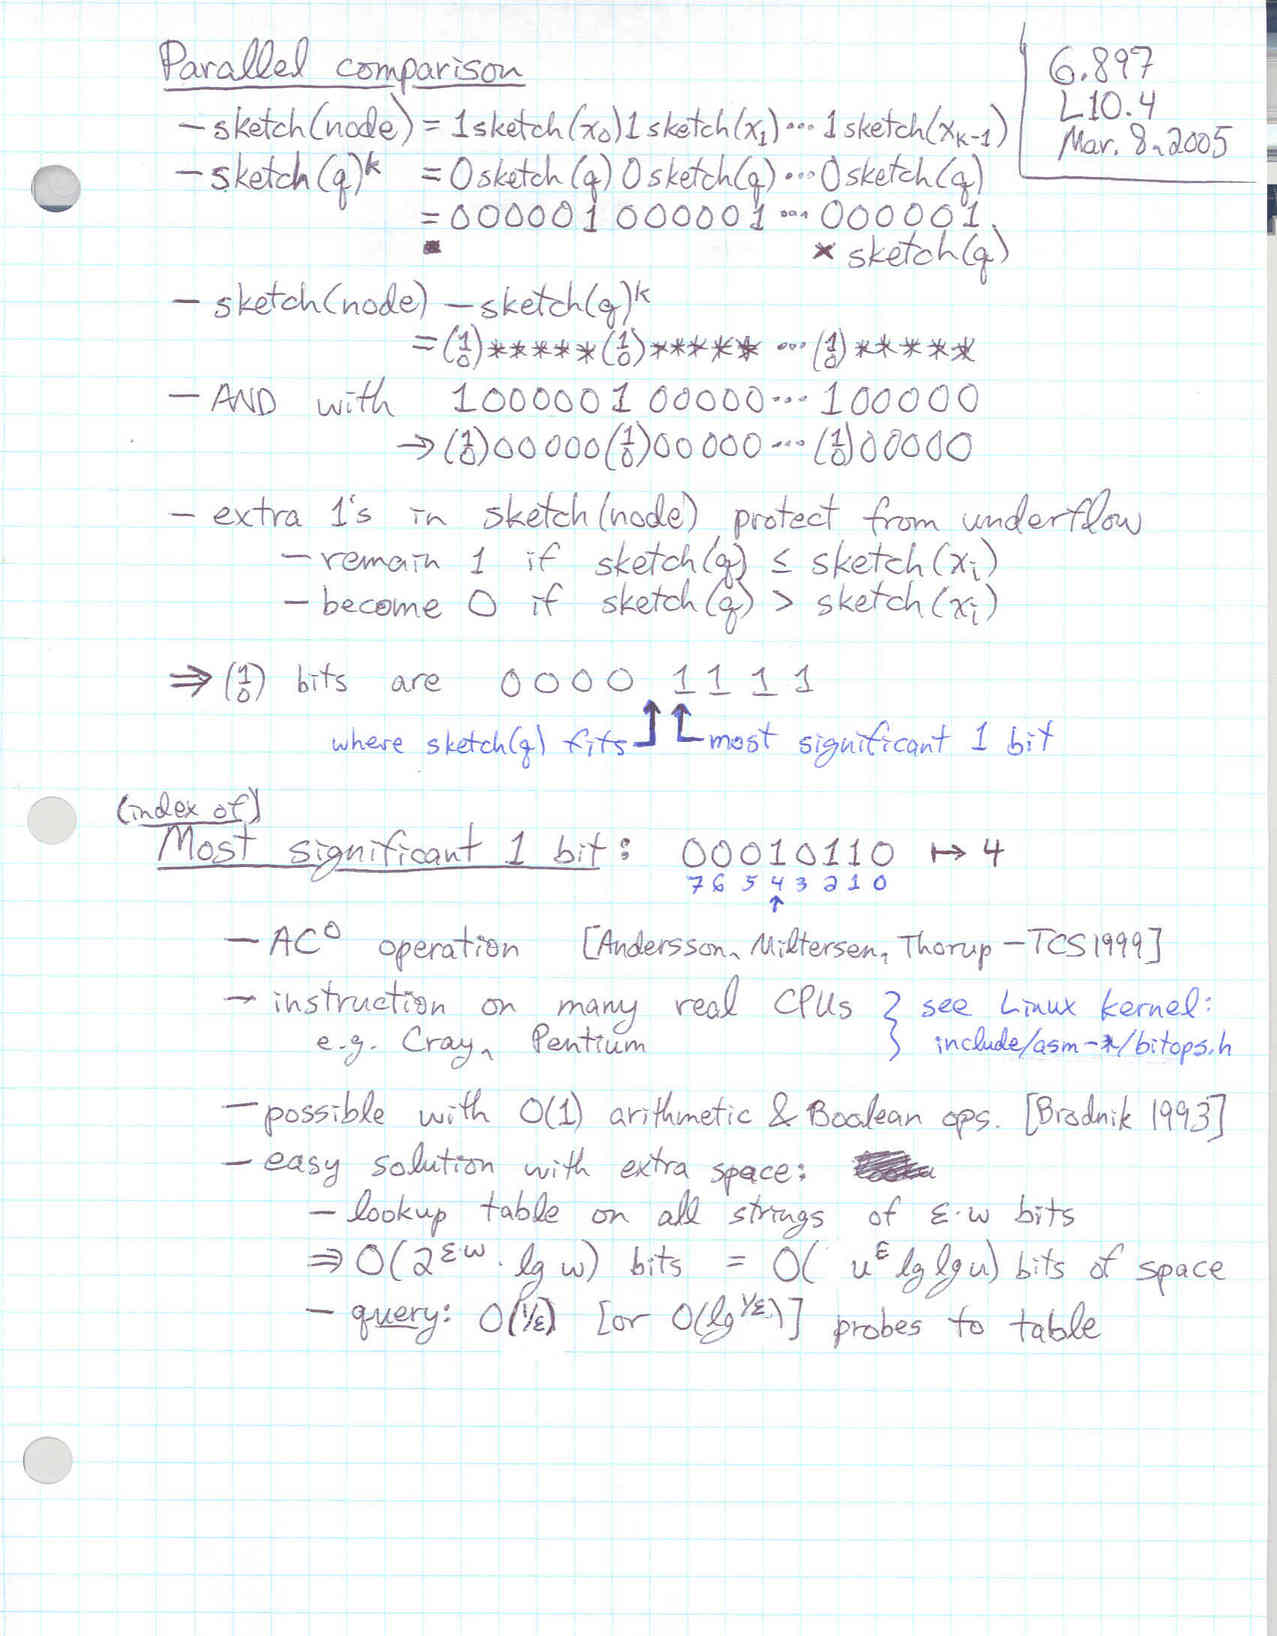 Parallel comparison
6.897
L10.4
Mar. 8, 2005
– sketch(node) = 1sketch(x₀)1sketch(x₁)···1sketch(xₖ₋₁)
– sketch(q)ᵏ = 0sketch(q)0sketch(q)···0sketch(q)
= 000001 000001 ··· 000001
* sketch(q)
– sketch(node) – sketch(q)ᵏ
= (1/0)*****(1/0)***** ··· (1/0)*****
– AND with 100000100000···100000
→ (1/0)00000(1/0)00000···(1/0)00000
– extra 1's in sketch(node) protect from underflow
– remain 1 if sketch(q) ≤ sketch(xᵢ)
– become 0 if sketch(q) > sketch(xᵢ)
⇒ (1/0) bits are 0000 1111
where sketch(q) fits most significant 1 bit
(index of)
Most significant 1 bit: 00010110 ↦ 4
7 6 5 4 3 2 1 0
– AC⁰ operation [Andersson, Miltersen, Thorup – TCS 1999]
– instruction on many real CPUs } see Linux kernel:
e.g. Cray, Pentium include/asm-*/bitops.h
– possible with O(1) arithmetic & Boolean ops. [Brodnik 1993]
– easy solution with extra space:
– lookup table on all strings of ε·w bits
⇒ O(2^(ε·w) · lg w) bits = O(u^ε lg lg u) bits of space
– query: O(1/ε) [or O(lg 1/ε)] probes to table